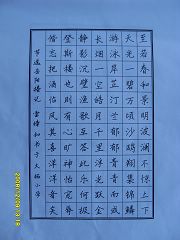 至若春和景明波澜不惊上下
天光一碧万顷沙鸥翔集锦鳞
游泳岸芷汀兰郁郁青青而或
长烟一空皓月千里浮光跃金
静影沉璧渔歌互答此乐何极
登斯楼也则有心旷神怡宠辱
偕忘把酒临风其喜洋洋者矣
节选岳阳楼记 书于大 小学